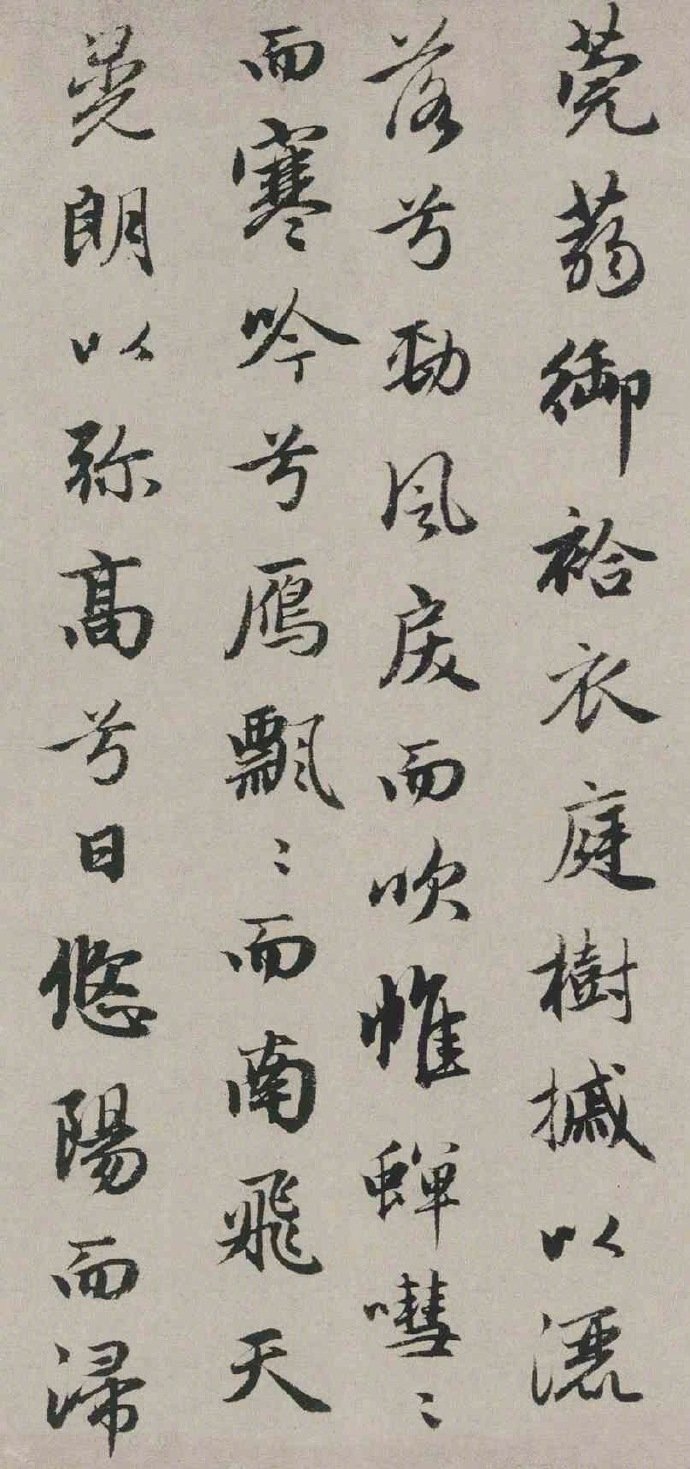 莞蒻御袷衣庭樹摵以灑
落兮勁風戾而吹帷蟬嘒〻
而寒吟兮鴈飄〻而南飛天
晃朗以弥高兮日悠陽而㴆